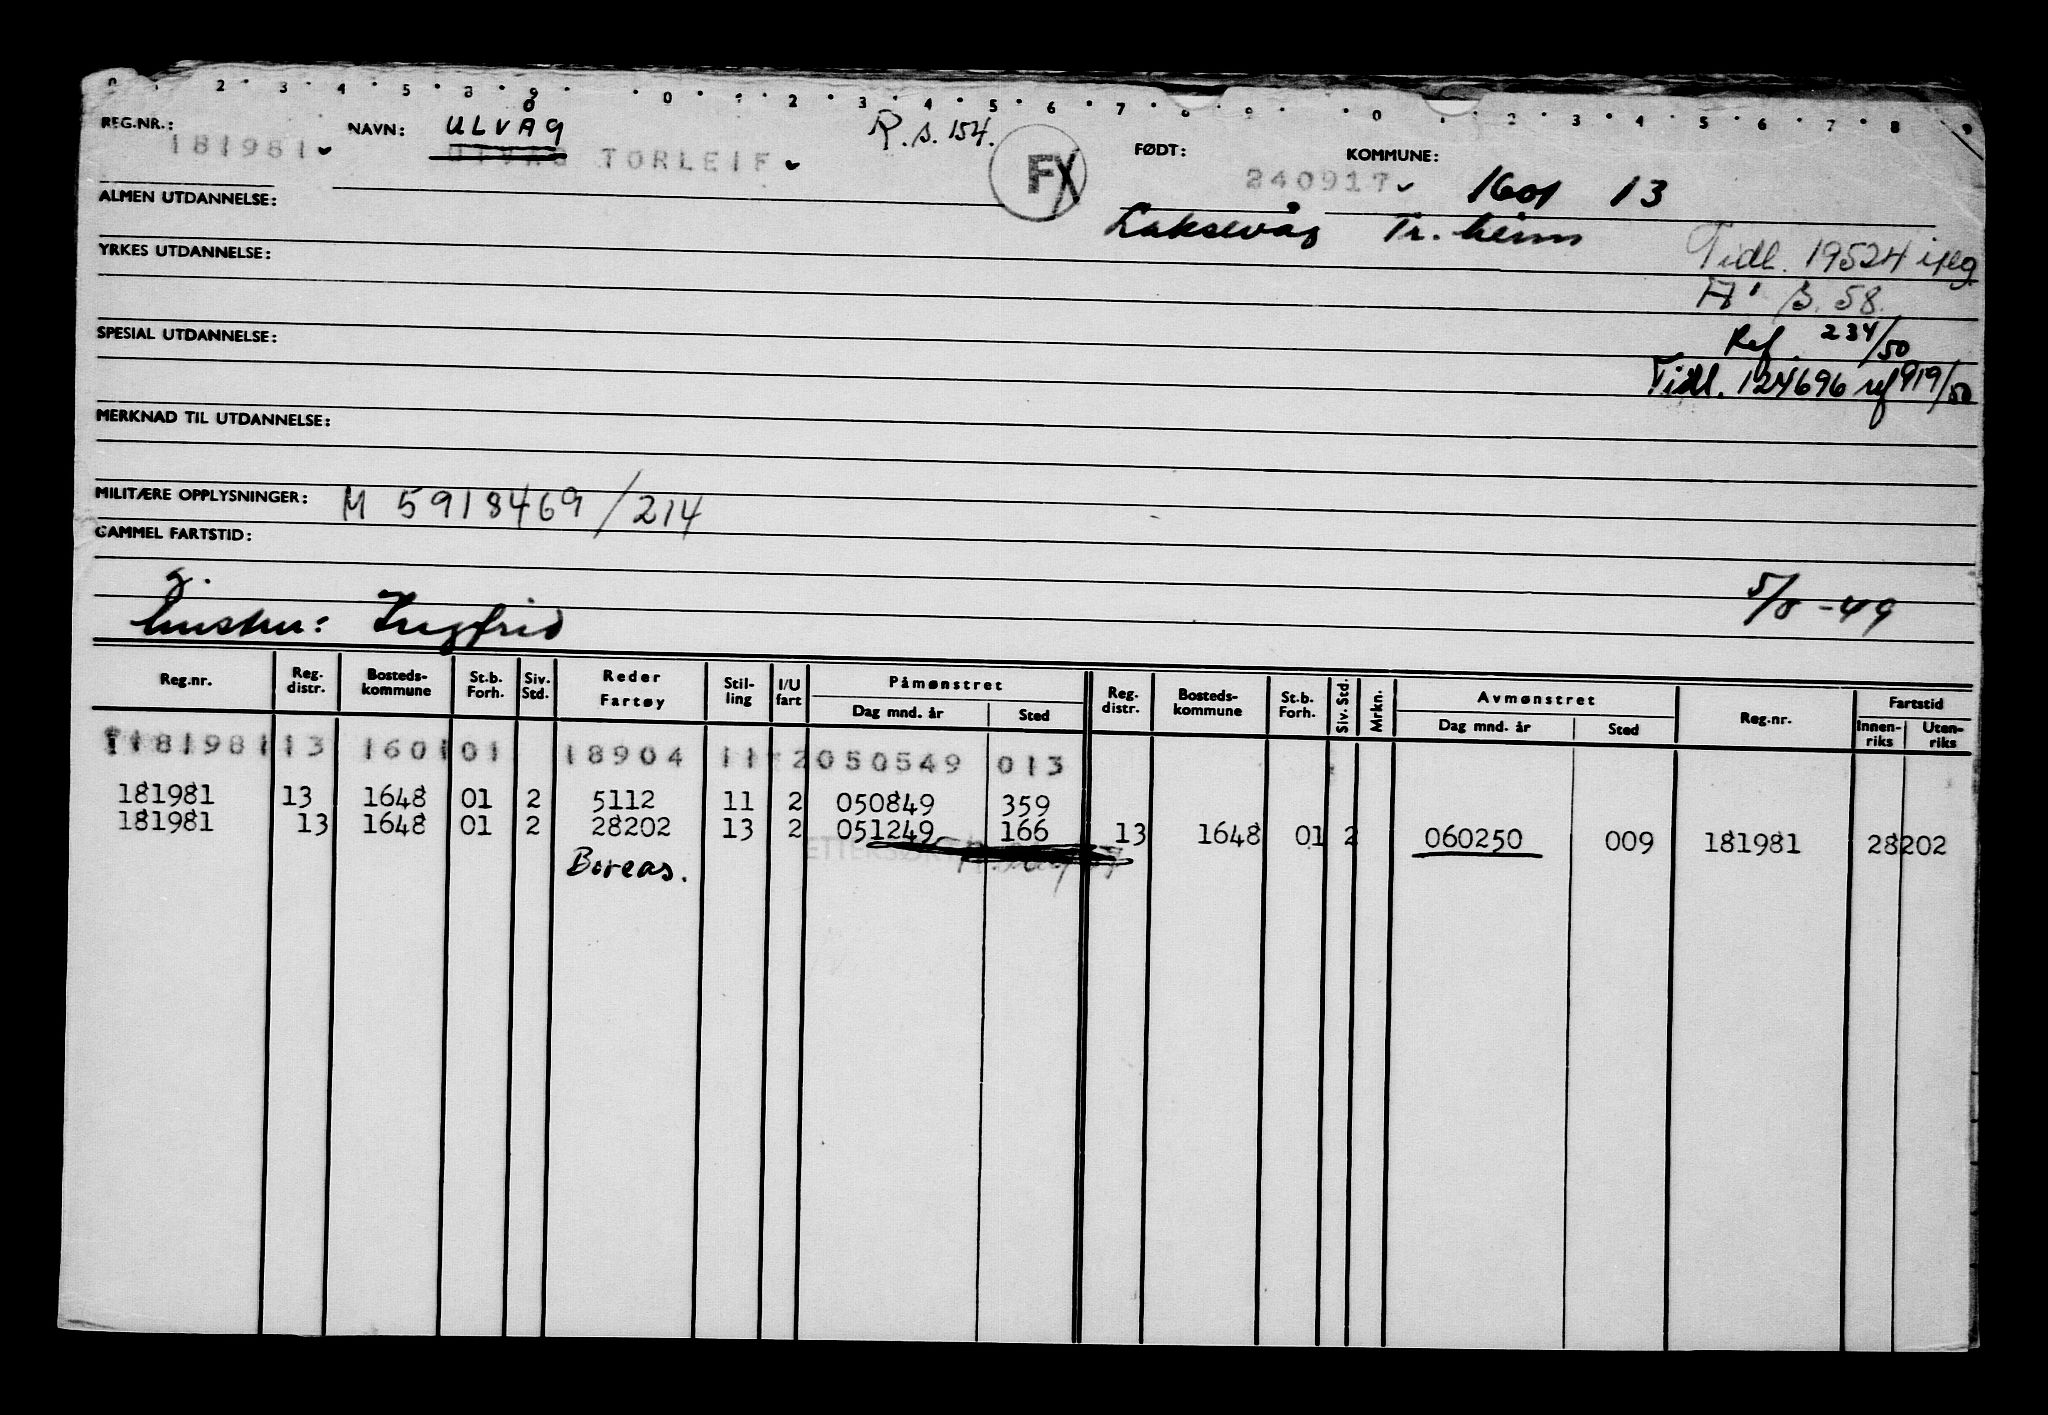 0 · · 2 · 3 · 4 · 5 · 8 · 9 · · 0 · · 2 · 3 · 4 · 5 · 6 · 7 · 8 · 9 · · 0 · · 2 · 3 · 4 · 5 · 6 · 7 · 8 · 9
REG.NR.: 181981 NAVN: ULVÅG R. s. 154.
TORLEIF FX FØDT: 240917 KOMMUNE: 1601 13
ALMEN UTDANNELSE: Laksevåg Tr. heim
YRKES UTDANNELSE: Tidl. 19524
s. 58.
SPESIAL UTDANNELSE: Ref. 234/50
Tidl. 124696 ref 919/50
MERKNAD TIL UTDANNELSE:
MILITÆRE OPPLYSNINGER: M 5918469/214
GAMMEL FARTSTID:
g.
hustru: Ingfrid 5/8-49
Reg.nr. Reg. distr. Bosteds-kommune St.b. Forh. Siv. Std. Reder Fartøy Stil-ling I/U fart Påmønstret Dag mnd. år Sted Reg. distr. Bosteds-kommune St.b. Forh. Siv. Std. Mrkn. Avmønstret Dag mnd. år Sted Reg.nr. Fartstid Innen-riks Uten-riks
181981 13 1601 01 18904 11 2 050549 013
181981 13 1648 01 2 5112 11 2 050849 359
181981 13 1648 01 2 28202 13 2 051249 166 13 1648 01 2 060250 009 181981 28202
Boreas.